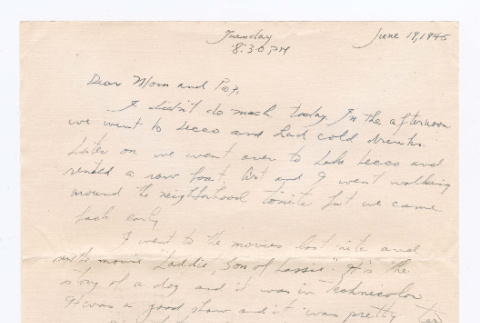 Tuesday June 19, 1945
8:30 PM
Dear Mom and Pop,
I didn't do much today. In the afternoon
we went to Lecco and had cold drinks.
Later on we went over to Lake Lecco and
rented a row boat. Bert and I went walking
around the neighborhood tonite but we came
back early.
I went to the movies last nite and
saw the movie "Laddie, Son of Lassie". It's the
story of a dog and it was in Technicolor.
It was a good show and it was pretty